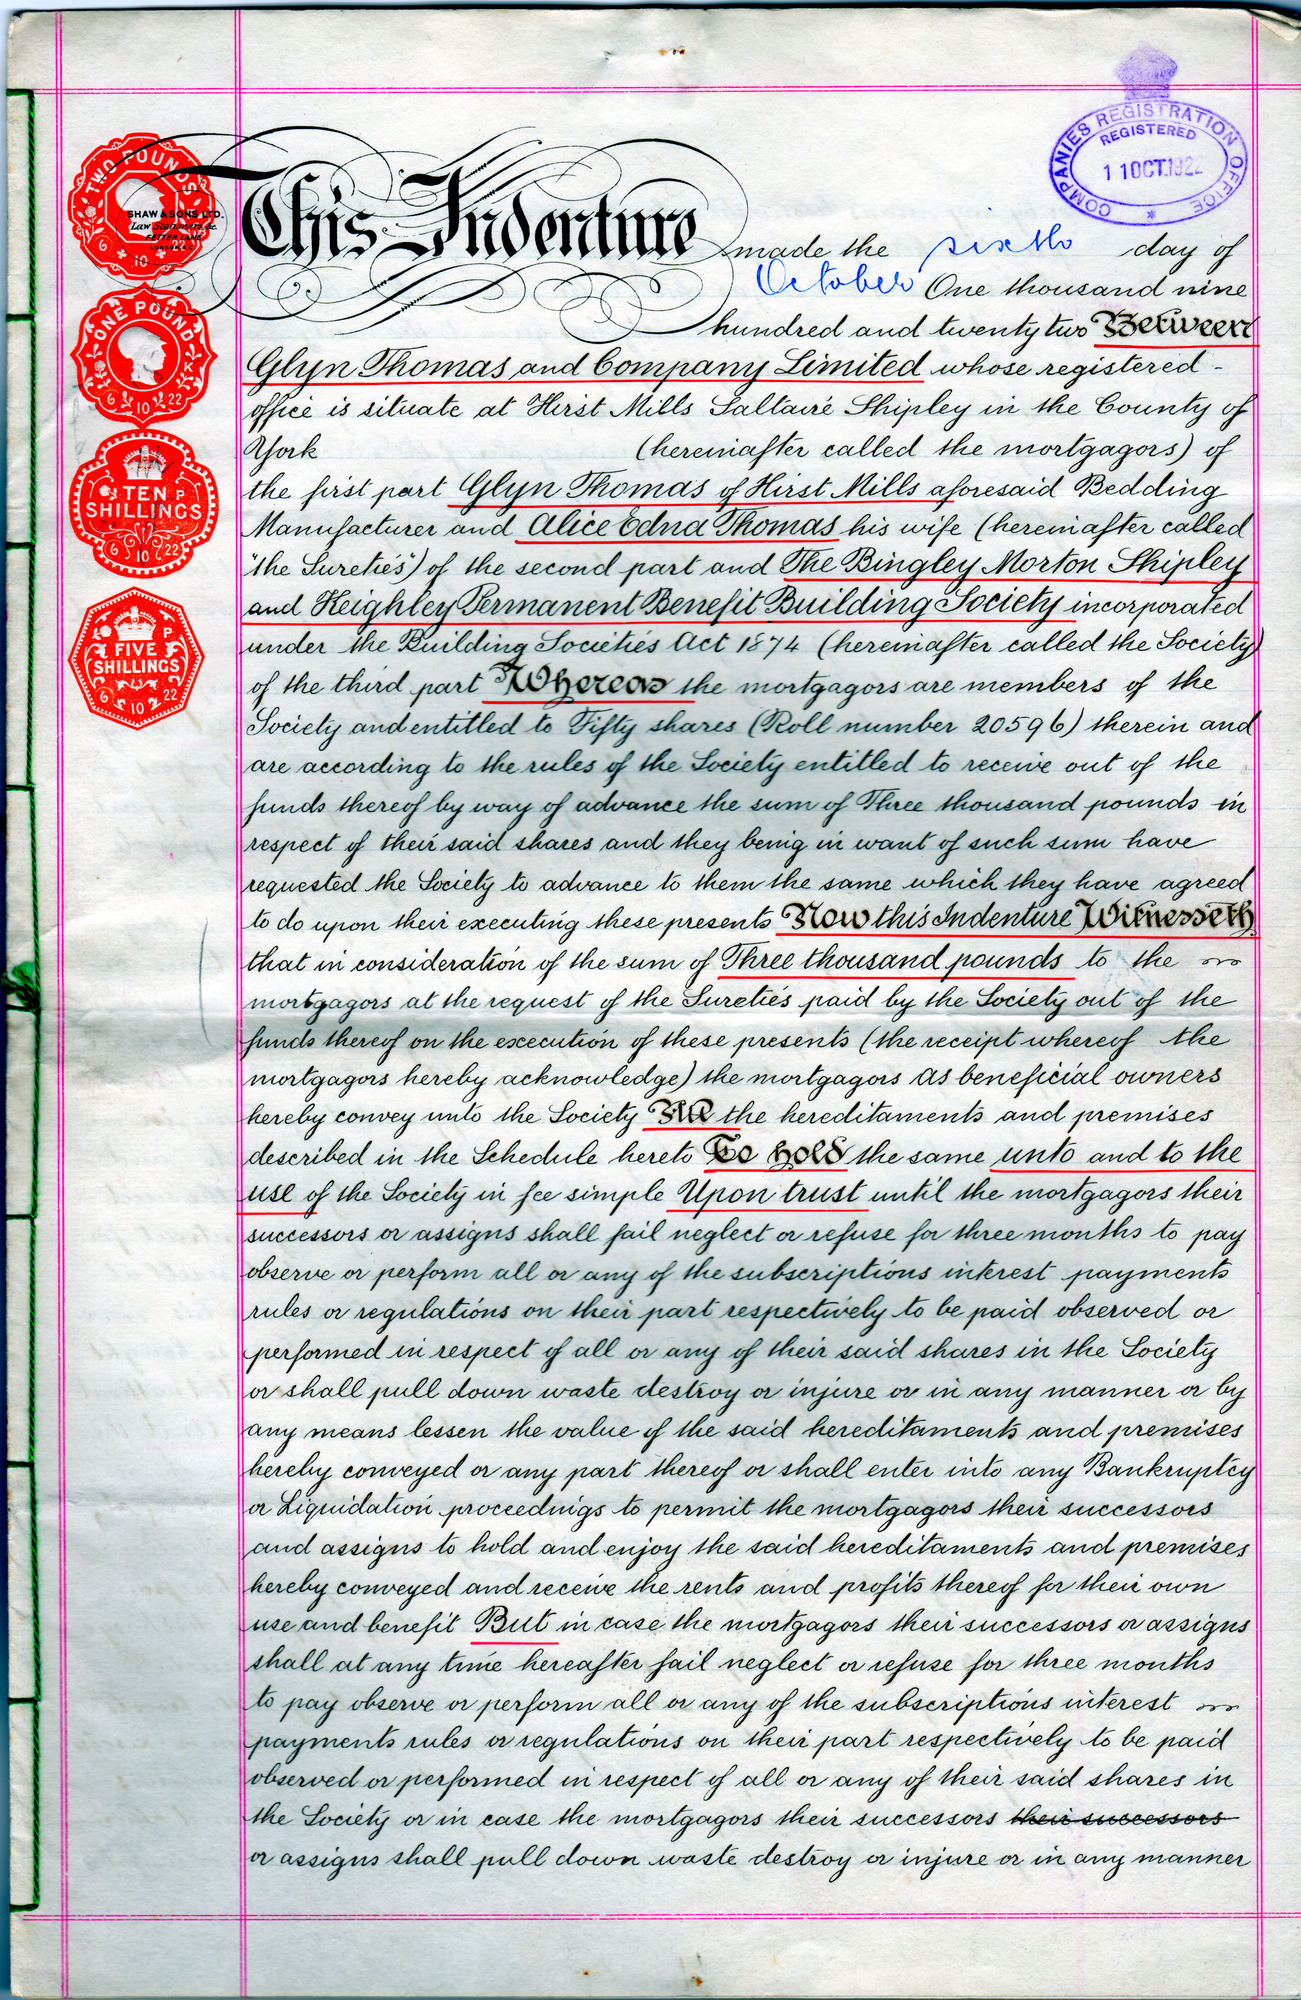 COMPANIES REGISTRATION OFFICE
REGISTERED
11 OCT. 1922
TWO POUNDS
SHAW & SONS LTD.
Law Stationers &c.
FETTER LANE
LONDON E.C.
6 10 22
ONE POUND
6 10 22
TEN SHILLINGS
P
6 10 22
FIVE SHILLINGS
P
6 10 22
This Indenture made the sixth day of
October One thousand nine
hundred and twenty two Between
Glyn Thomas and Company Limited whose registered -
office is situate at Hirst Mills Saltaire Shipley in the County of
York (hereinafter called the mortgagors) of
the first part Glyn Thomas of Hirst Mills aforesaid Bedding
Manufacturer and Alice Edna Thomas his wife (hereinafter called
"the Sureties") of the second part and The Bingley Morton Shipley
and Keighley Permanent Benefit Building Society incorporated
under the Building Societies Act 1874 (hereinafter called the Society)
of the third part Whereas the mortgagors are members of the
Society and entitled to Fifty shares (Roll number 20596) therein and
are according to the rules of the Society entitled to receive out of the
funds thereof by way of advance the sum of Three thousand pounds in
respect of their said shares and they being in want of such sum have
requested the Society to advance to them the same which they have agreed
to do upon their executing these presents Now this Indenture Witnesseth
that in consideration of the sum of Three thousand pounds to the
mortgagors at the request of the Sureties paid by the Society out of the
funds thereof on the execution of these presents (the receipt whereof the
mortgagors hereby acknowledge) the mortgagors as beneficial owners
hereby convey unto the Society All the hereditaments and premises
described in the Schedule hereto To hold the same unto and to the
use of the Society in fee simple Upon trust until the mortgagors their
successors or assigns shall fail neglect or refuse for three months to pay
observe or perform all or any of the subscriptions interest payments
rules or regulations on their part respectively to be paid observed or
performed in respect of all or any of their said shares in the Society
or shall pull down waste destroy or injure or in any manner or by
any means lessen the value of the said hereditaments and premises
hereby conveyed or any part thereof or shall enter into any Bankruptcy
or Liquidation proceedings to permit the mortgagors their successors
and assigns to hold and enjoy the said hereditaments and premises
hereby conveyed and receive the rents and profits thereof for their own
use and benefit But in case the mortgagors their successors or assigns
shall at any time hereafter fail neglect or refuse for three months
to pay observe or perform all or any of the subscriptions interest
payments rules or regulations on their part respectively to be paid
observed or performed in respect of all or any of their said shares in
the Society or in case the mortgagors their successors their successors
or assigns shall pull down waste destroy or injure or in any manner